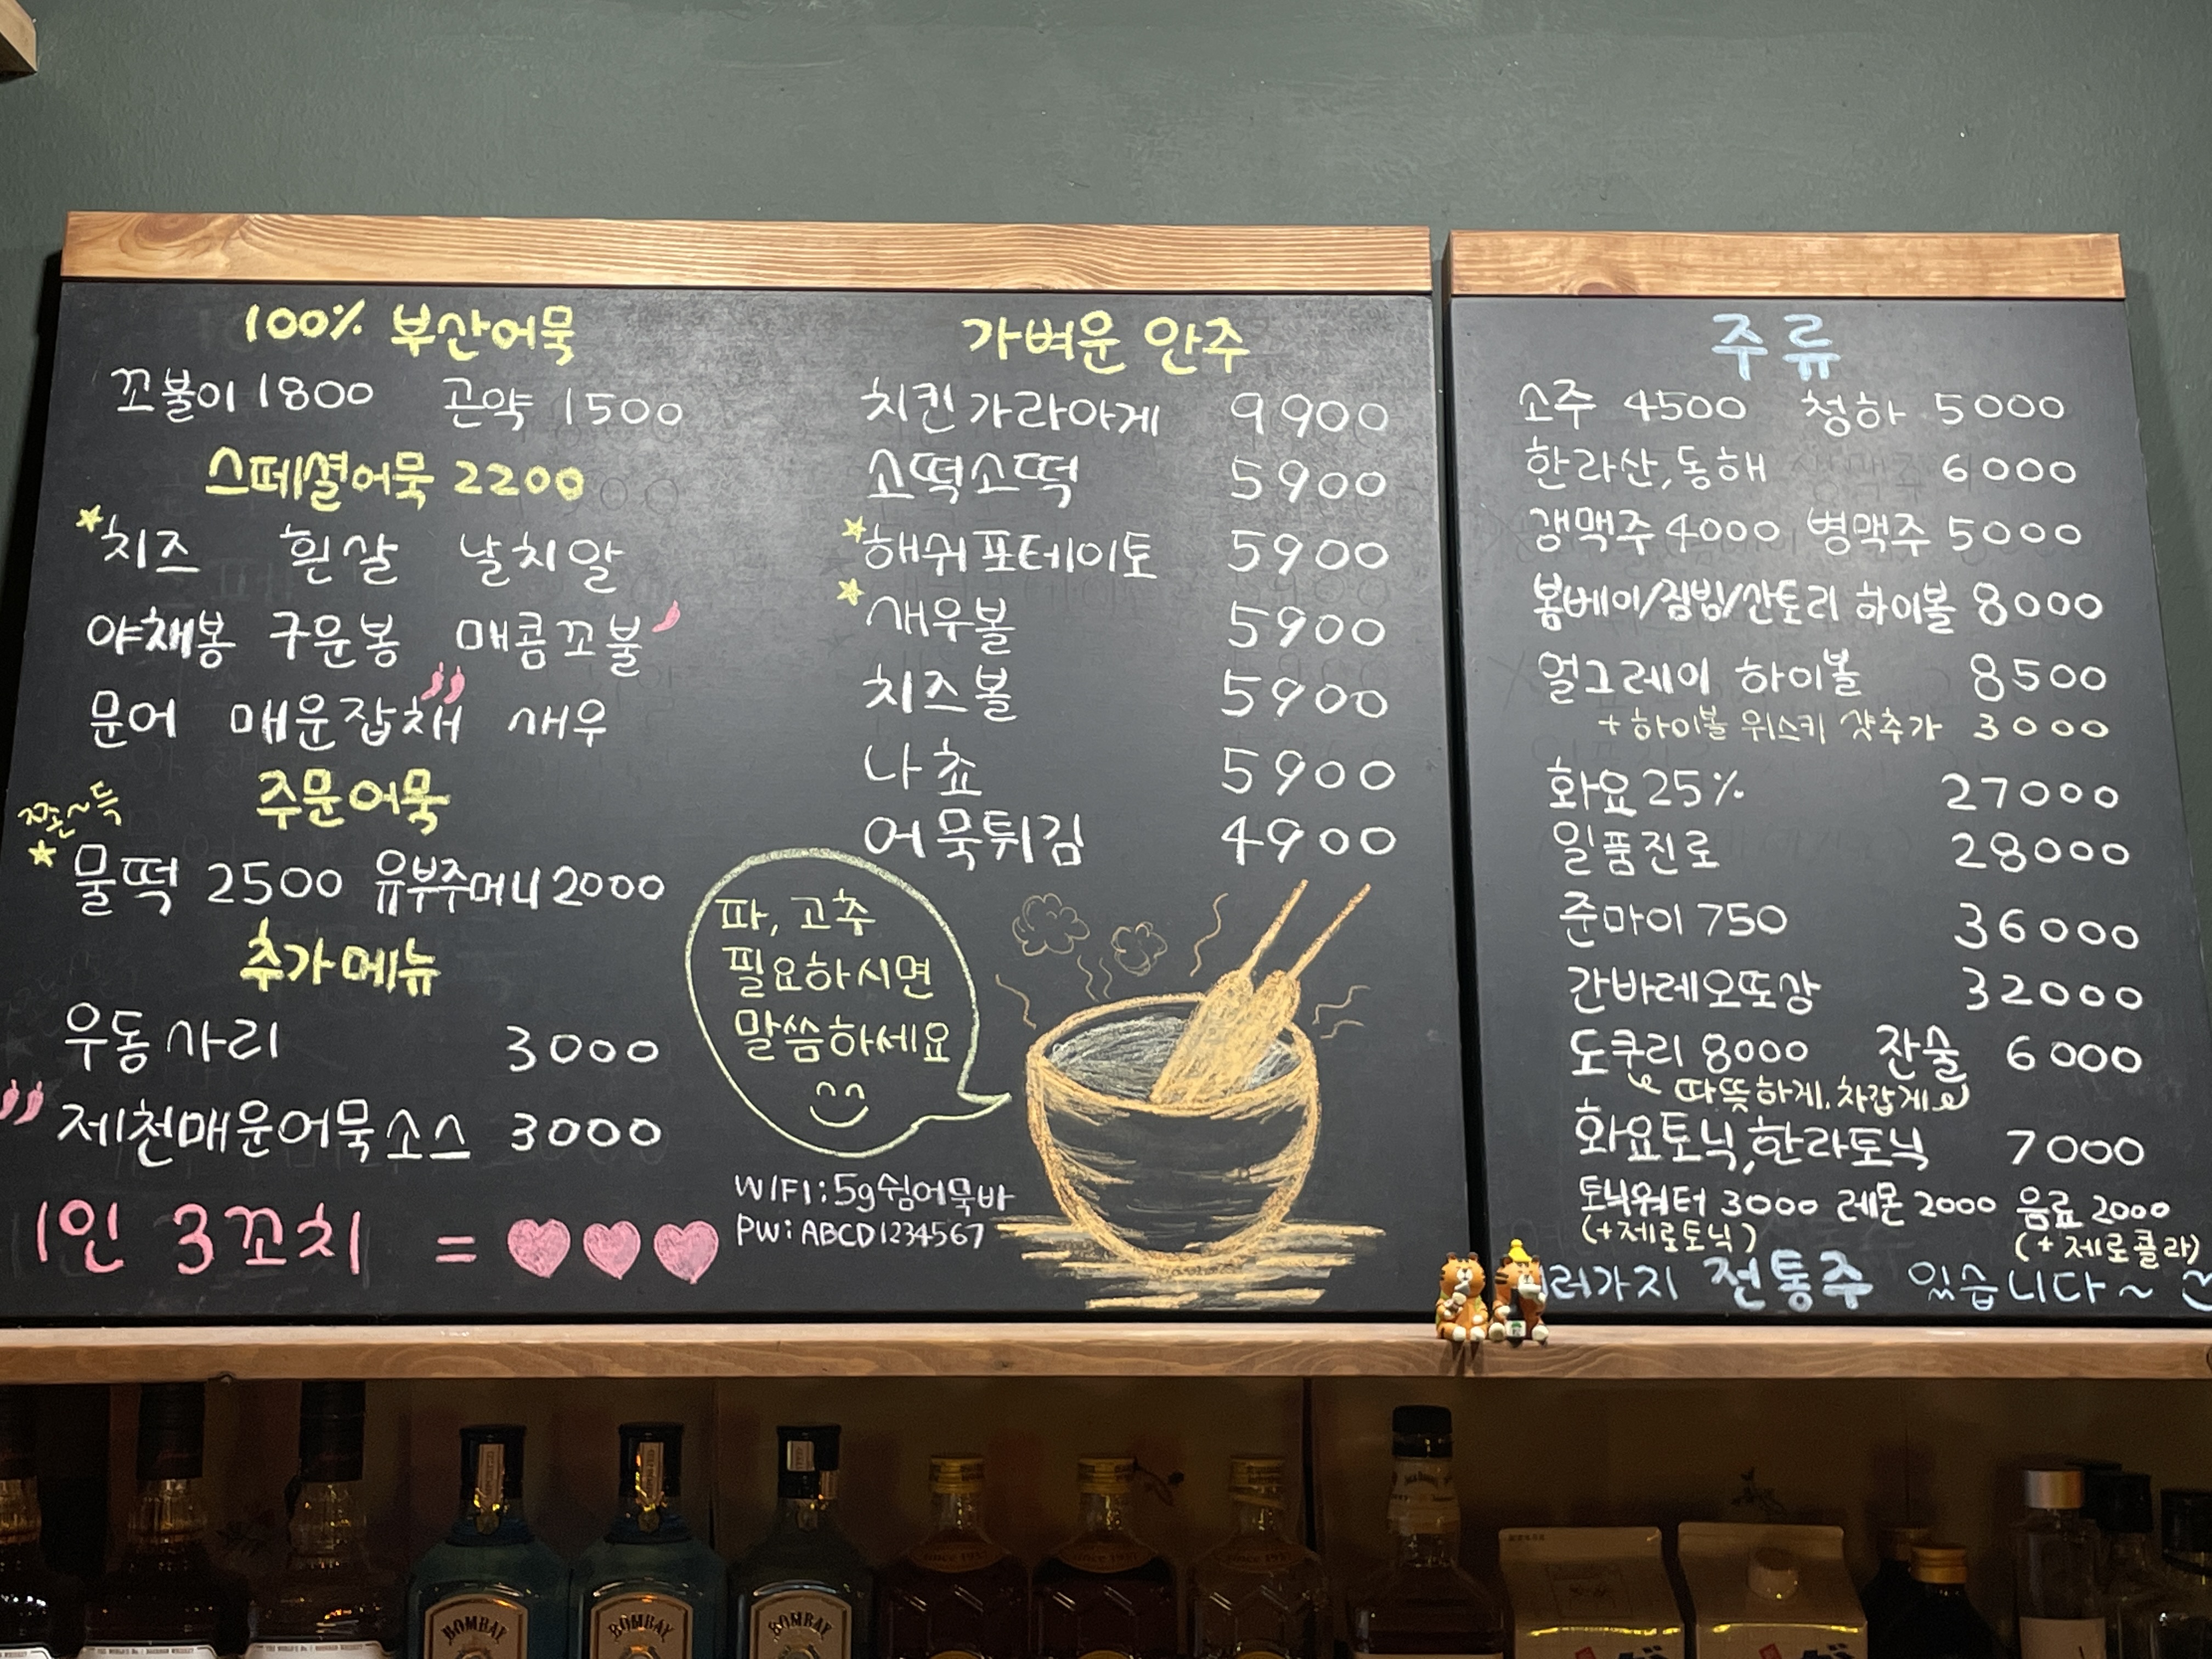 100% 부산어묵
꼬불이 1800 곤약 1500
스페셜어묵 2200
치즈 흰살 날치알
야채봉 구운봉 매콤꼬불
문어 매운잡채 새우
주문어묵
쫀~득
물떡 2500 유부주머니 2000
추가메뉴
우동사리 3000
제천매운어묵소스 3000
1인 3꼬치 =
가벼운 안주
치킨가라아게 9900
소떡소떡 5900
해쉬포테이토 5900
새우볼 5900
치즈볼 5900
나쵸 5900
어묵튀김 4900
파, 고추
필요하시면
말씀하세요
WIFI: 5g쉼어묵바
PW: ABCD1234567
주류
소주 4500 청하 5000
한라산,동해 6000
걩맥주 4000 병맥주 5000
봄베이/짐빔/산토리 하이볼 8000
얼그레이 하이볼 8500
+ 하이볼 위스키 샷추가 3000
화요 25% 27000
일품진로 28000
준마이 750 36000
간바레오또상 32000
도쿠리 8000 잔술 6000
따뜻하게.차갑게요
화요토닉,한라토닉 7000
토닉워터 3000 레몬 2000 음료 2000
(+제로토닉) (+제로콜라)
러가지 전통주 있습니다~
BOMBAY
BOMBAY
BOMBAY